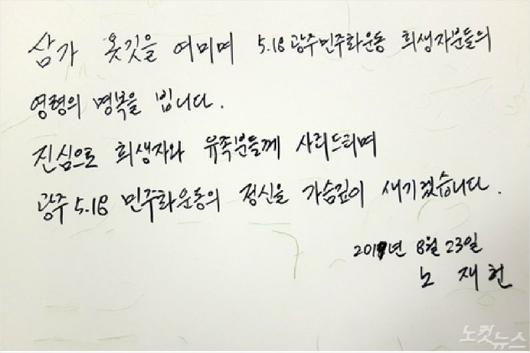 삼가 옷깃을 여미며 5.18 광주민주화운동 희생자분들의
영령의 명복을 빕니다.
진심으로 희생자와 유족분들께 사죄드리며
광주 5.18 민주화운동의 정신을 가슴깊이 새기겠습니다.
2019년 8월 23일
노 재 헌
노컷뉴스